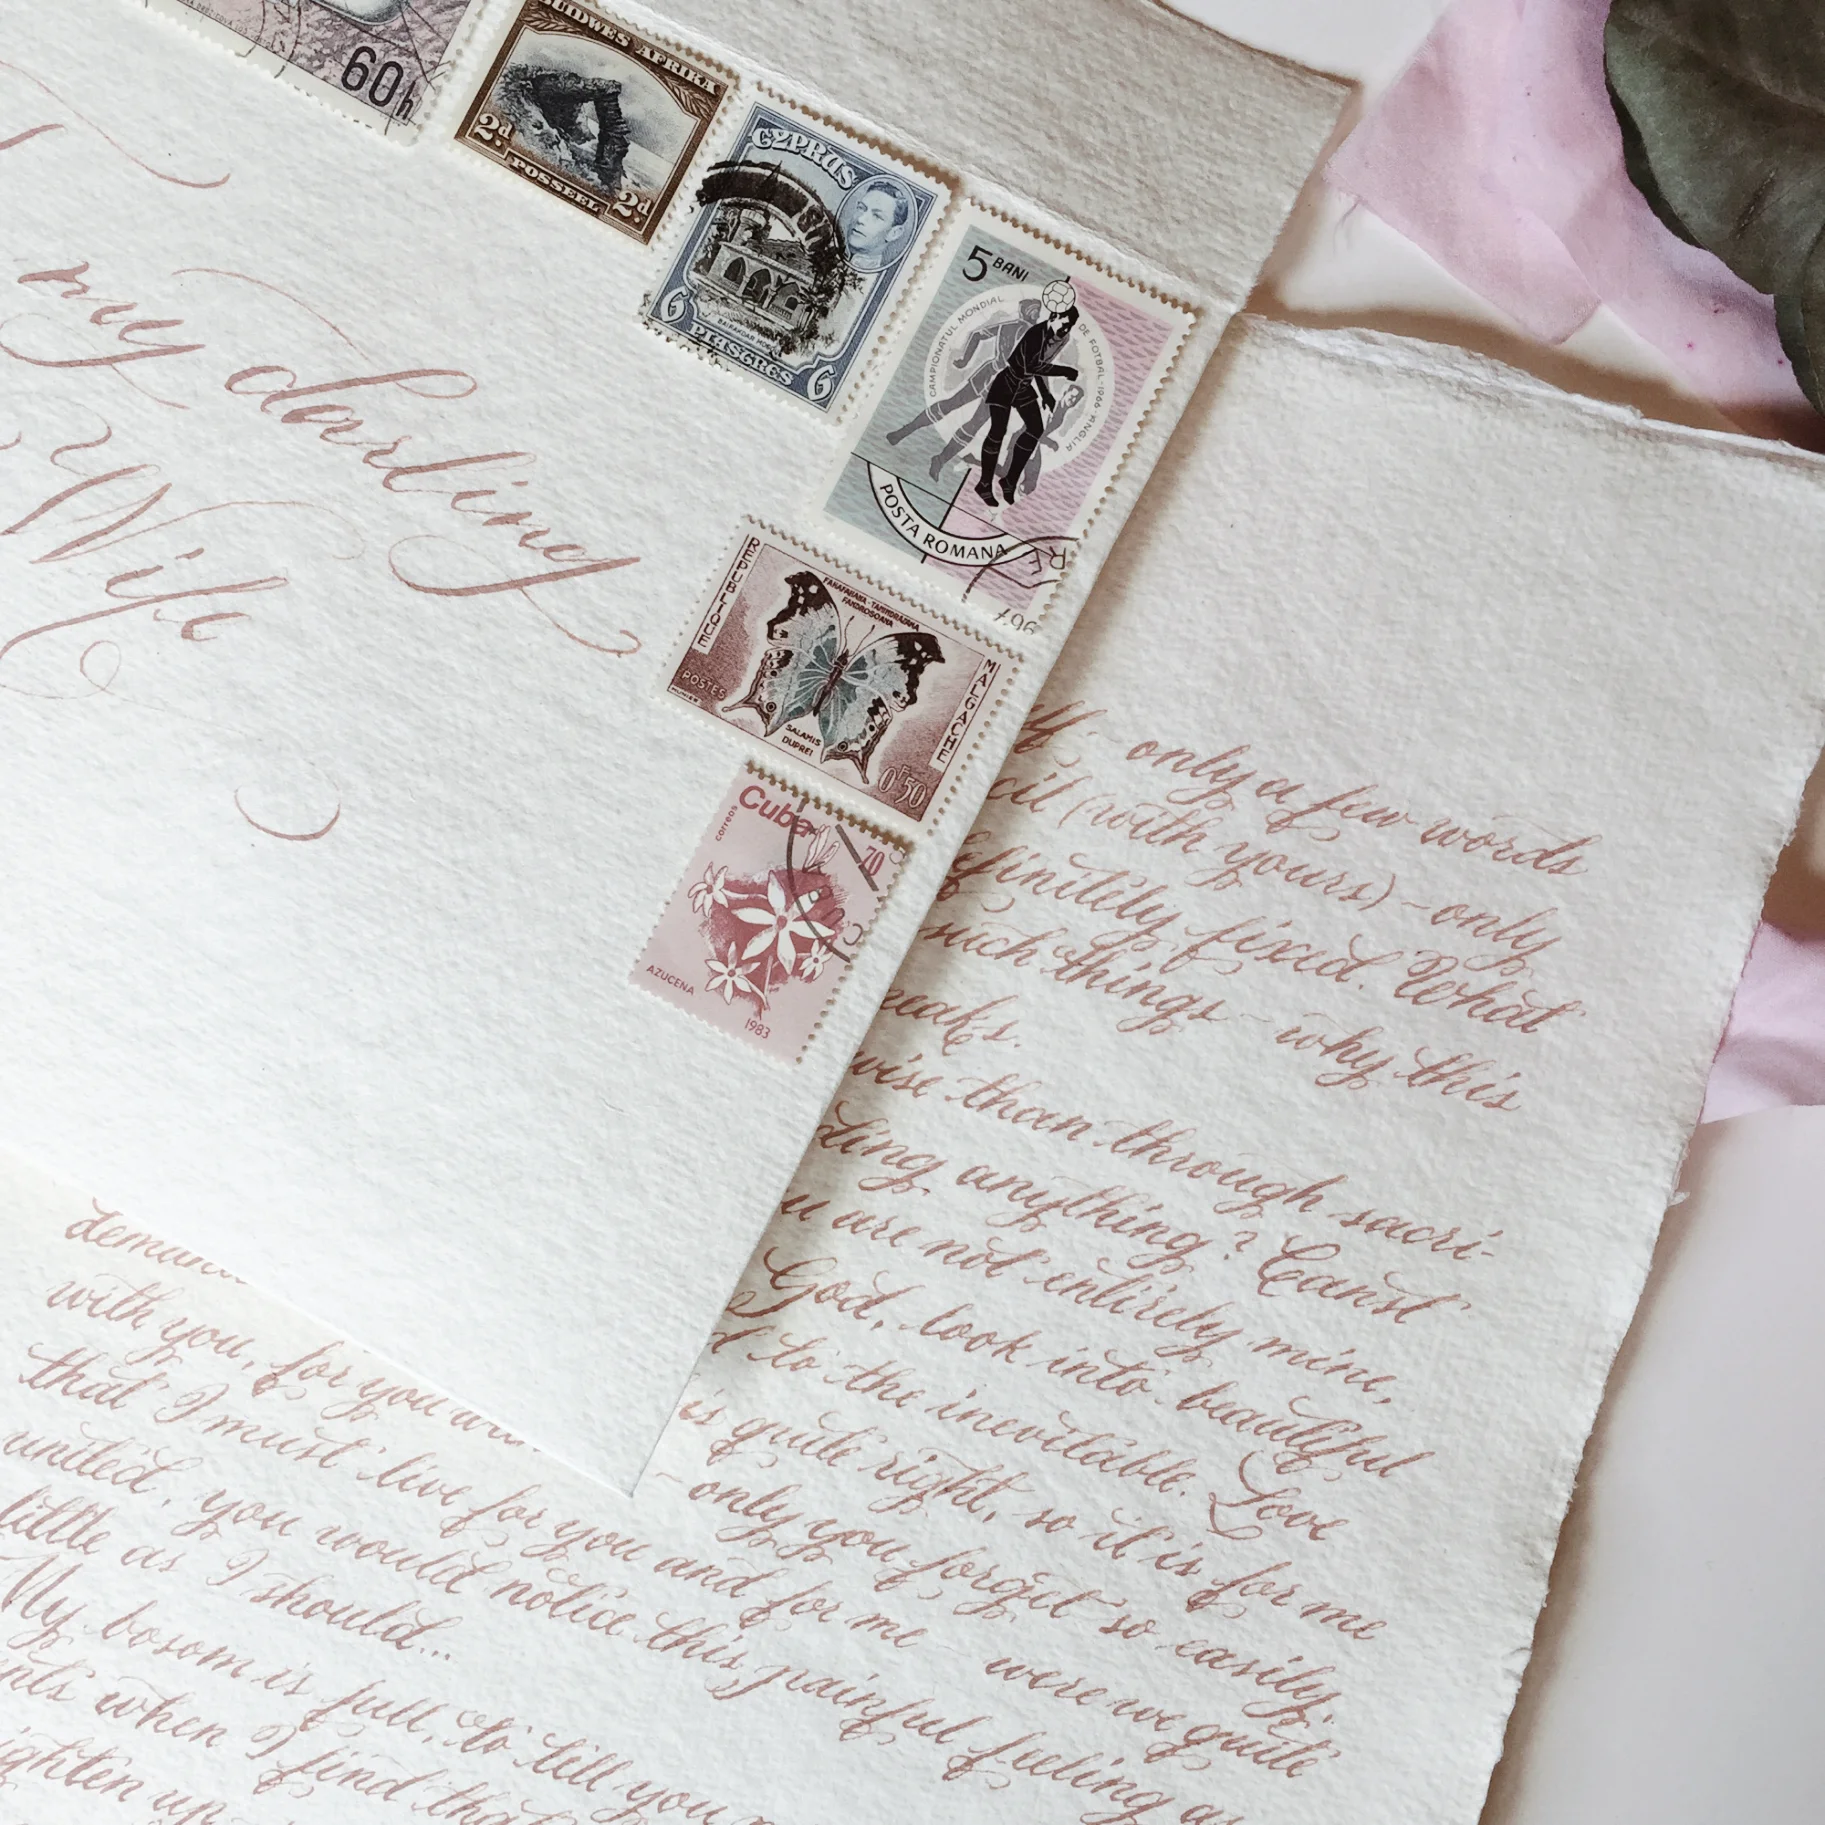 60h
SUIDWES AFRIKA
2d
POSSEEL
2d
CYPRUS
6 PIASTRES 6
5 BANI
CAMPIONATUL MONDIAL DE FOTBAL · 1966 · ANGLIA
POSTA ROMANA
REPUBLIQUE
FANAFAHANA - TANINDRAZANA
FANDROSOANA
MALGACHE
POSTES
SALAMIS
DUPREI
0F50
Cuba
correos
20
AZUCENA
1983
my darling
Wife
only a few words
(with yours) - only
fixed. What
such things - why this
than through sacri-
anything? Canst
are not entirely mine,
God, look into beautiful
to the inevitable. Love
is quite right, so it is for me
- only you forget so easily,
with you, for you
that I must live for you and for me were we quite
united, you would notice this painful feeling as
little as I should...
My bosom is full, to tell you
when I find
up